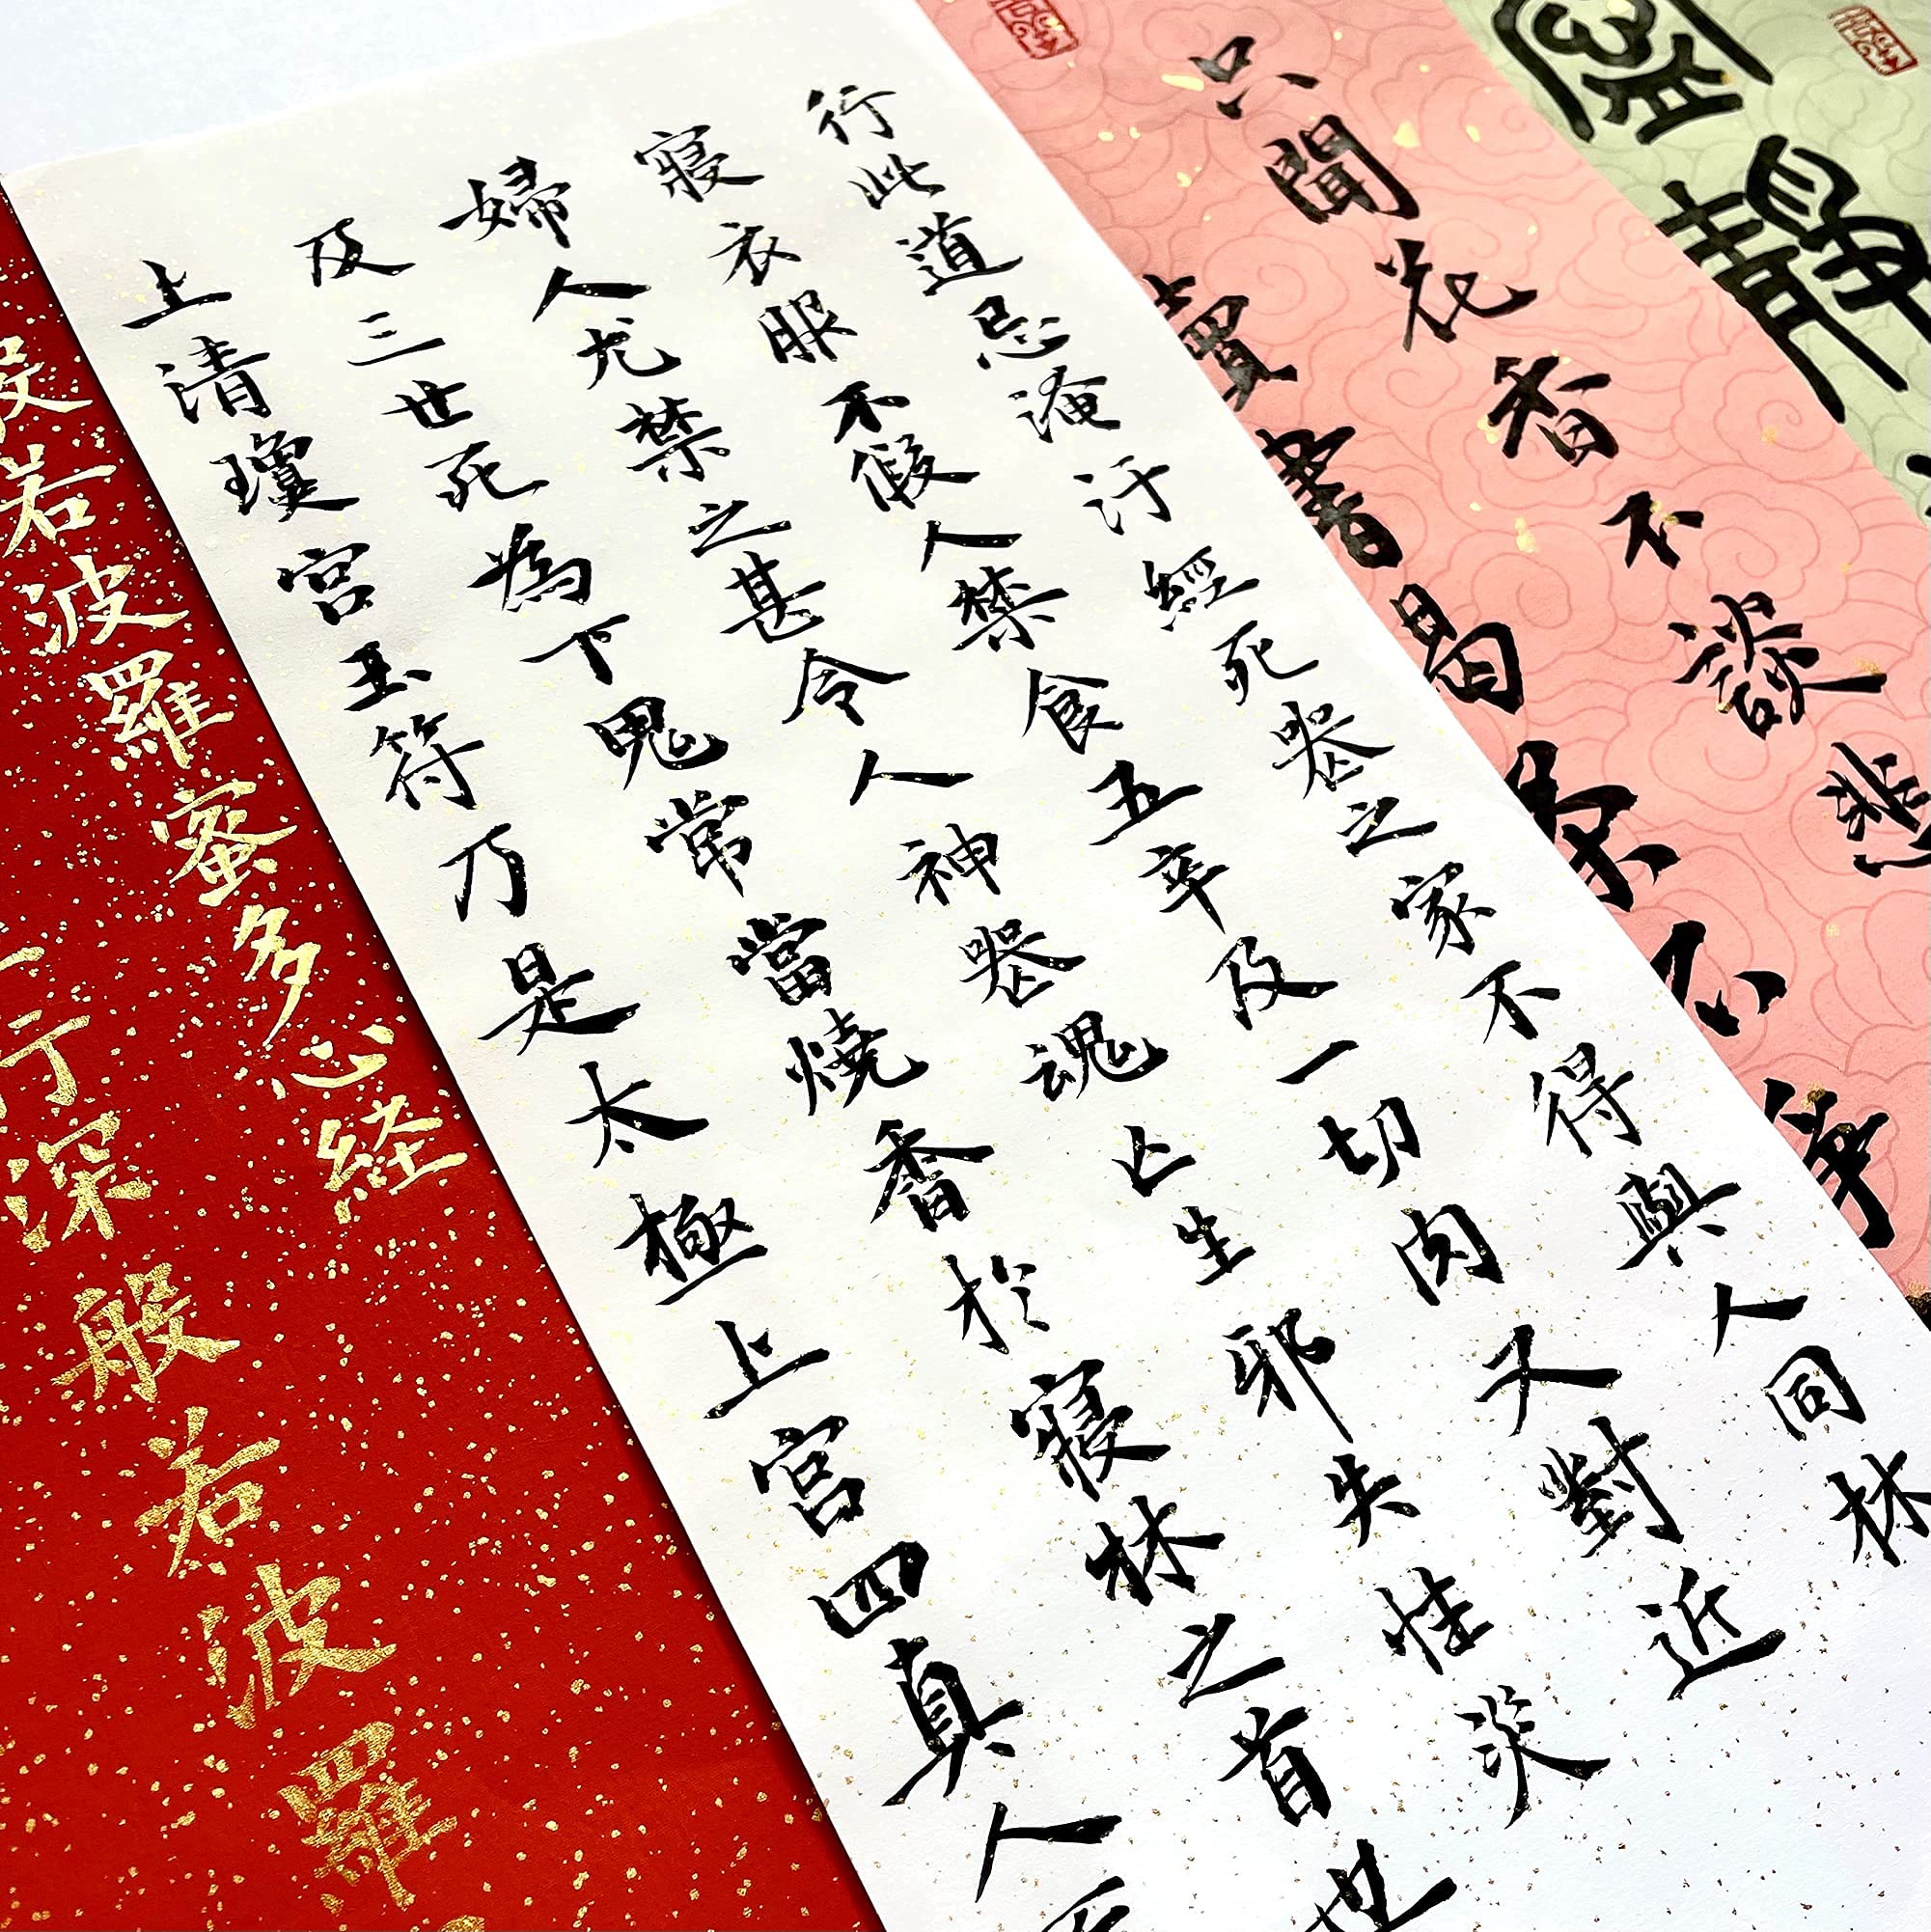 靜
只聞花香不談悲
讀書喝茶不爭
行此道忌淹汙經死喪之家不得與人同牀
寢衣服不假人禁食五辛及一切肉又對近
婦人尤禁之甚令人神喪魂亡生邪失性災
及三世死為下鬼常當燒香於寢牀之首也
上清瓊宮玉符乃是太極上宮四真人所
般若波羅蜜多心経
行深般若波羅